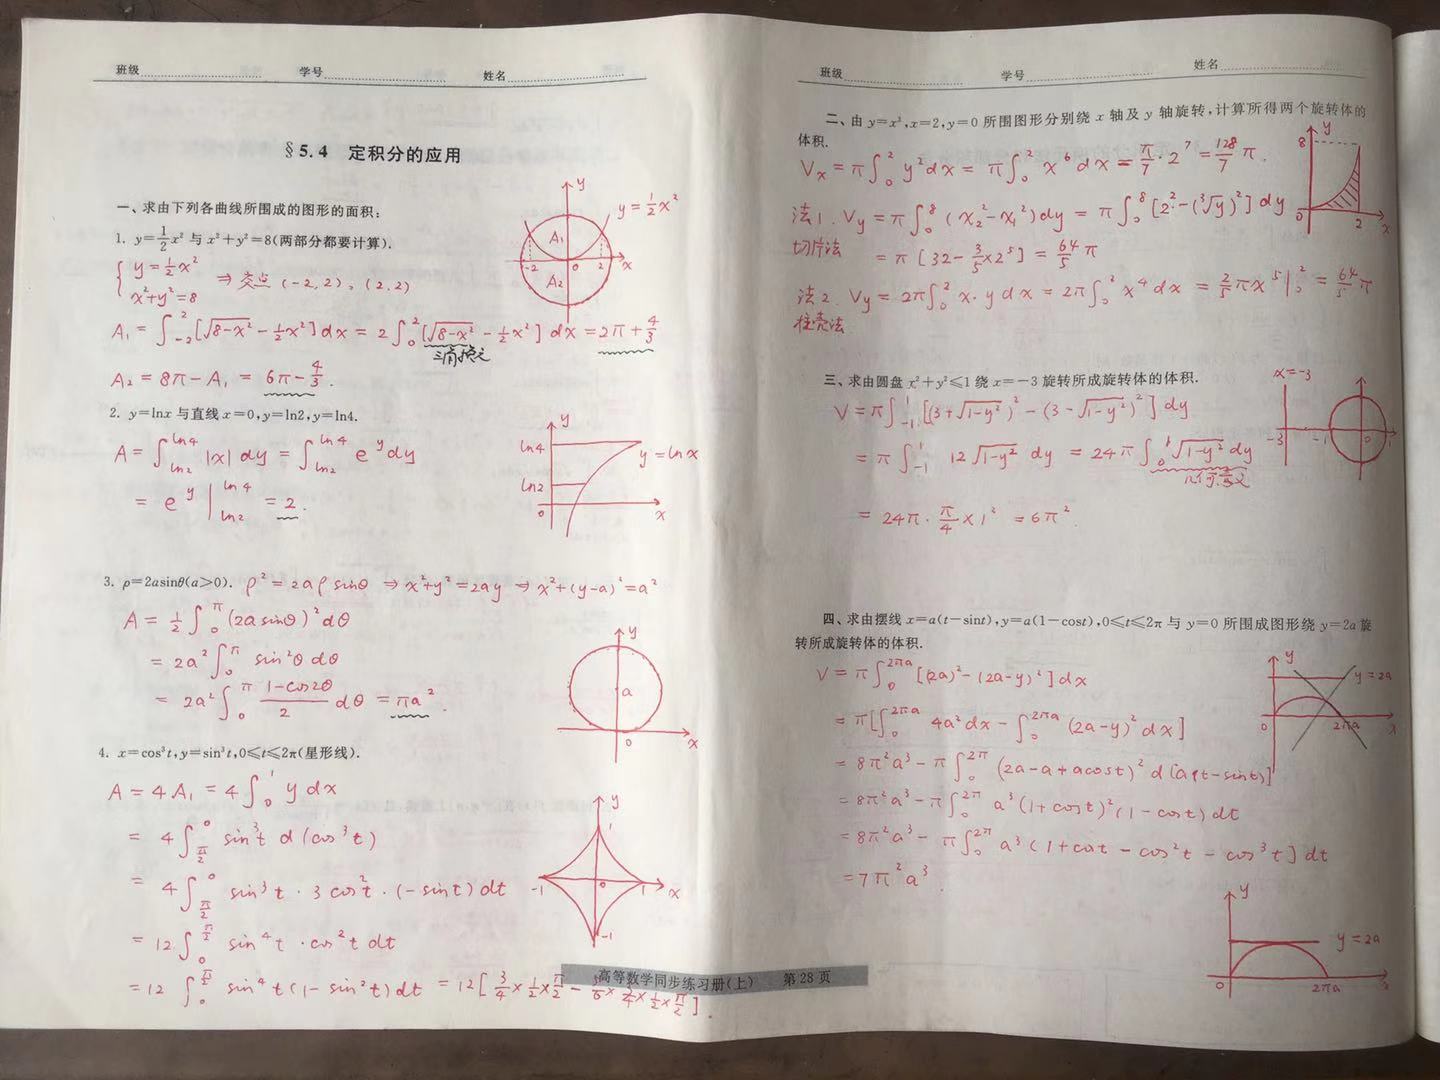 班级 学号 姓名
§5.4 定积分的应用
一、求由下列各曲线所围成的图形的面积:
1. y=1/2x²与x²+y²=8(两部分都要计算).
{ y=½x²
x²+y²=8 ⇒ 交点 (-2,2), (2,2)
A₁ = ∫_{-2}^{2}[√(8-x²) - ½x²]dx = 2∫_0^2[√(8-x²) - ½x²]dx = 2π+4/3
三角换元
A₂ = 8π-A₁ = 6π-4/3.
y
y=½x²
A₁
-2 0 2 x
A₂
2. y=lnx与直线x=0,y=ln2,y=ln4.
A=∫_{ln2}^{ln4}|x|dy=∫_{ln2}^{ln4}e^y dy
= e^y|_{ln2}^{ln4} = 2.
y
ln4
y=lnx
ln2
0 x
3. ρ=2asinθ(a>0). ρ²=2aρsinθ ⇒ x²+y²=2ay ⇒ x²+(y-a)²=a²
A=½∫_0^π(2asinθ)²dθ
=2a²∫_0^π sin²θdθ
=2a²∫_0^π (1-cos2θ)/2 dθ=πa².
y
a
0 x
4. x=cos³t,y=sin³t,0≤t≤2π(星形线).
A=4A₁=4∫_0^1 ydx
= 4∫_{π/2}^0 sin³t d(cos³t)
= 4∫_{π/2}^0 sin³t·3cos²t·(-sint)dt
=12∫_0^{π/2} sin⁴t·cos²tdt
=12∫_0^{π/2} sin⁴t(1-sin²t)dt =12[3/4×1/2×π/2-5/6×3/4×1/2×π/2].
y
1
-1 0 1 x
-1
高等数学同步练习册(上) 第28页
班级 学号 姓名
二、由y=x³,x=2,y=0所围图形分别绕x轴及y轴旋转,计算所得两个旋转体的
体积.
Vx=π∫_0^2 y²dx=π∫_0^2 x⁶dx=π/7·2⁷=128/7π.
法1. Vy=π∫_0^8(x₂²-x₁²)dy=π∫_0^8[2²-(∛y)²]dy
切片法 =π[32-3/5×2⁵]=64/5π
法2. Vy=2π∫_0^2 x·ydx=2π∫_0^2 x⁴dx=2/5πx⁵|_0^2=64/5π
柱壳法
y
8
0 2 x
三、求由圆盘x²+y²≤1绕x=-3旋转所成旋转体的体积.
V=π∫_{-1}^1[(3+√(1-y²))²-(3-√(1-y²))²]dy
=π∫_{-1}^1 12√(1-y²)dy=24π∫_0^1√(1-y²)dy
几何意义
=24π·π/4×1²=6π².
x=-3
-3 -1 0 1
四、求由摆线x=a(t-sint),y=a(1-cost),0≤t≤2π与y=0所围成图形绕y=2a旋
转所成旋转体的体积.
V=π∫_0^{2πa}[(2a)²-(2a-y)²]dx
=π[∫_0^{2πa}4a²dx-∫_0^{2πa}(2a-y)²dx]
=8π²a³-π∫_0^{2π}(2a-a+acost)²d[a(t-sint)]
=8π²a³-π∫_0^{2π}a³(1+cost)²(1-cost)dt
=8π²a³-π∫_0^{2π}a³(1+cost-cos²t-cos³t]dt
=7π²a³.
y
y=2a
0 2πa x
y
y=2a
0 2πa x